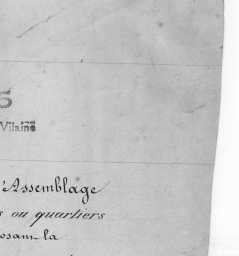 5
Vilaine
'Assemblage
s ou quartiers
osant la